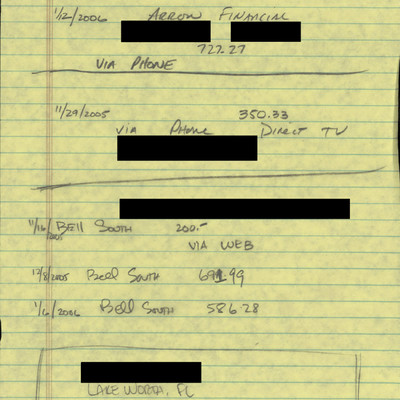 1/2/2006 ARROW FINANCIAL
727.27
VIA PHONE
11/29/2005 350.33
VIA PHONE DIRECT TV
11/16/2005 BELL SOUTH 200.-
VIA WEB
12/8/2005 Bell South 691.99
1/6/2006 Bell South 586.28
LAKE WORTH, FL